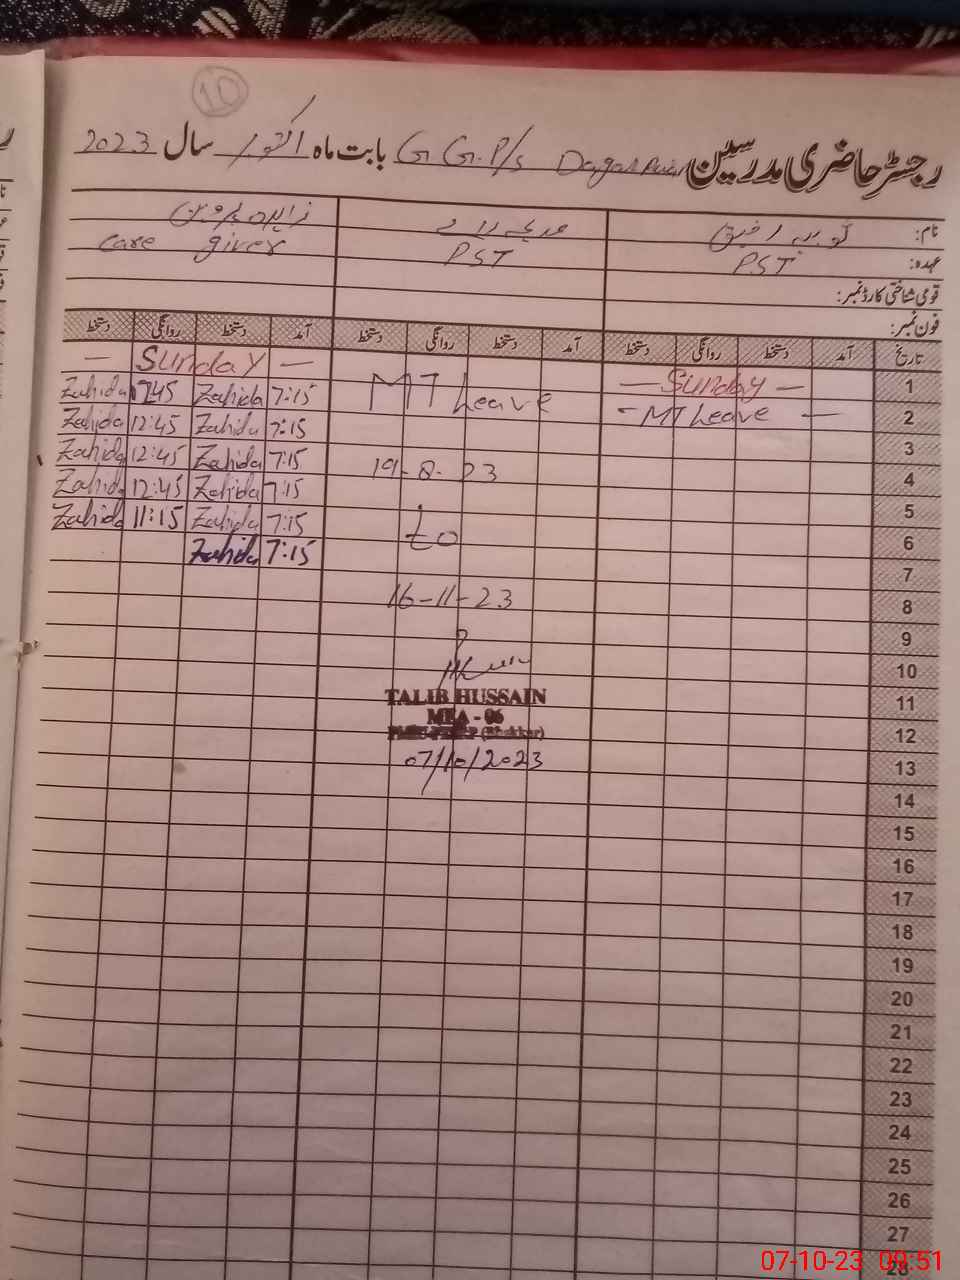 10
رجسٹر حاضری مدرسین G G.P/s بابت ماہ اکتوبر سال 2023
نام: ثوبیہ رفیق زاہدہ پروین
عہدہ: PST PST care giver
قومی شناختی کارڈ نمبر:
فون نمبر:
تاریخ آمد دستخط روانگی دستخط آمد دستخط روانگی دستخط آمد دستخط روانگی دستخط
1 — Sunday — — Sunday —
2 - MT Leave — MT Leave 7:15 Zahida 12:45 Zahida
3 7:15 Zahida 12:45 Zahida
4 19-8-23 7:15 Zahida 12:45 Zahida
5 7:15 Zahida 12:45 Zahida
6 to 7:15 Zahida 11:15 Zahida
7 7:15 Zahida
8 16-11-23
9
10
11 TALIB HUSSAIN
12 MEA - 06
(Bhakkar)
13 07/10/2023
14
15
16
17
18
19
20
21
22
23
24
25
26
27
28
07-10-23 09:51